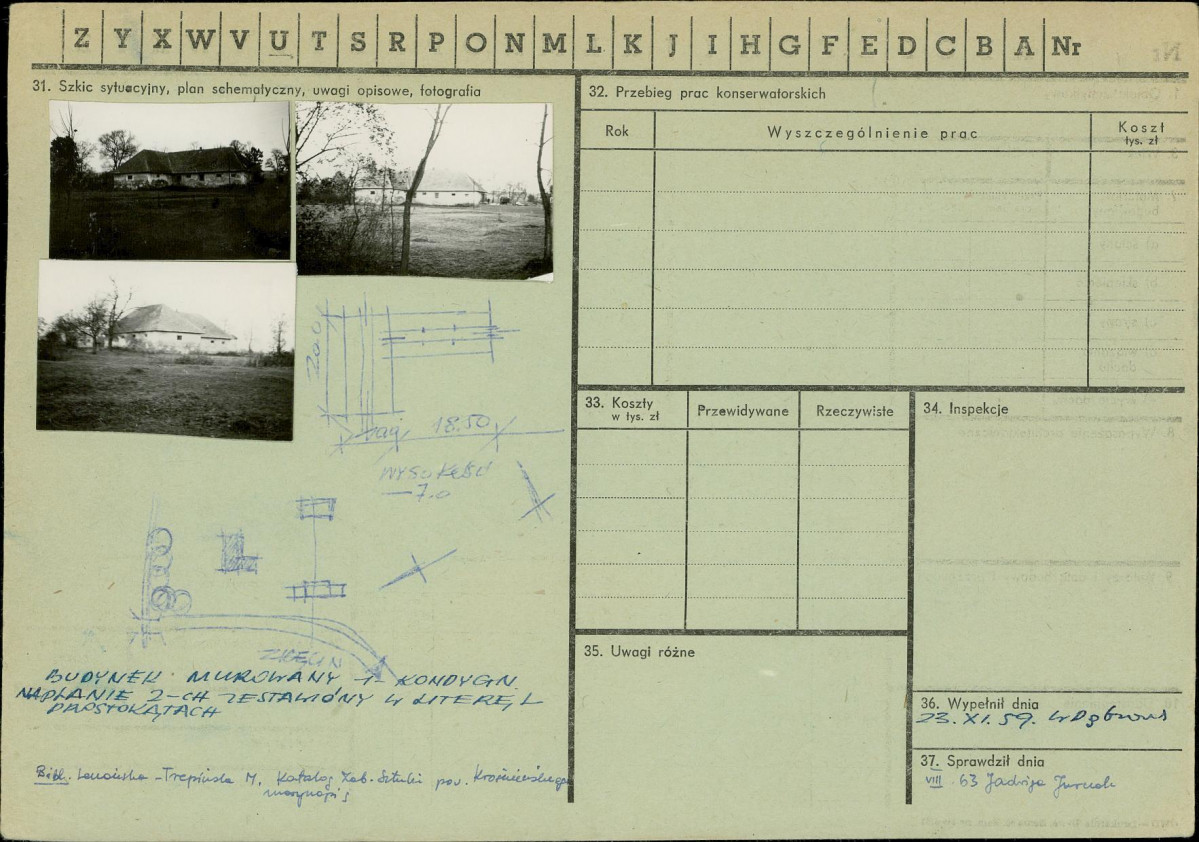 Z Y X W V U T S R P O N M L K J I H G F E D C B A Nr
31. Szkic sytuacyjny, plan schematyczny, uwagi opisowe, fotografia
20.0
18.50
WYSOKOŚĆ
7.0
ZRĘCIN
BUDYNEK MUROWANY 1- KONDYGN.
NA PLANIE 2-CH ZESTAWIONY W LITERĘ L
PROSTOKĄTACH
Bibl. -Trepińska M. Katalog Zab. Sztuki pow. Krośnieńskiego
maszynopis
32. Przebieg prac konserwatorskich
Rok
Wyszczególnienie prac
Koszt
tys. zł
33. Koszty
w tys. zł
Przewidywane
Rzeczywiste
34. Inspekcje
35. Uwagi różne
36. Wypełnił dnia
23. XI. 59.
37. Sprawdził dnia
VIII 63 Jadwiga